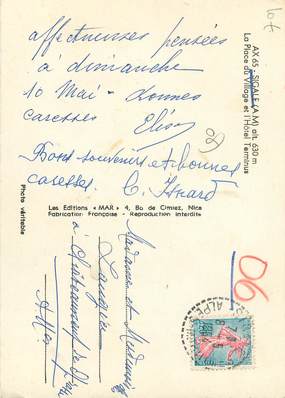 affectueuses pensées
à dimanche
10 Mai - bonnes
caresses Élise
Bons souvenirs et bonnes
caresses. C. Isnard
AX 65 - SIGALE (A.M) alt. 630 m
La Place du Village et l'Hôtel Terminus
Photo véritable
Les Editions « MAR » 4, Bo de Cimiez, Nice
Fabrication Française - Reproduction interdite
Madame et Madame
à Châteauneuf de
A Mes
06